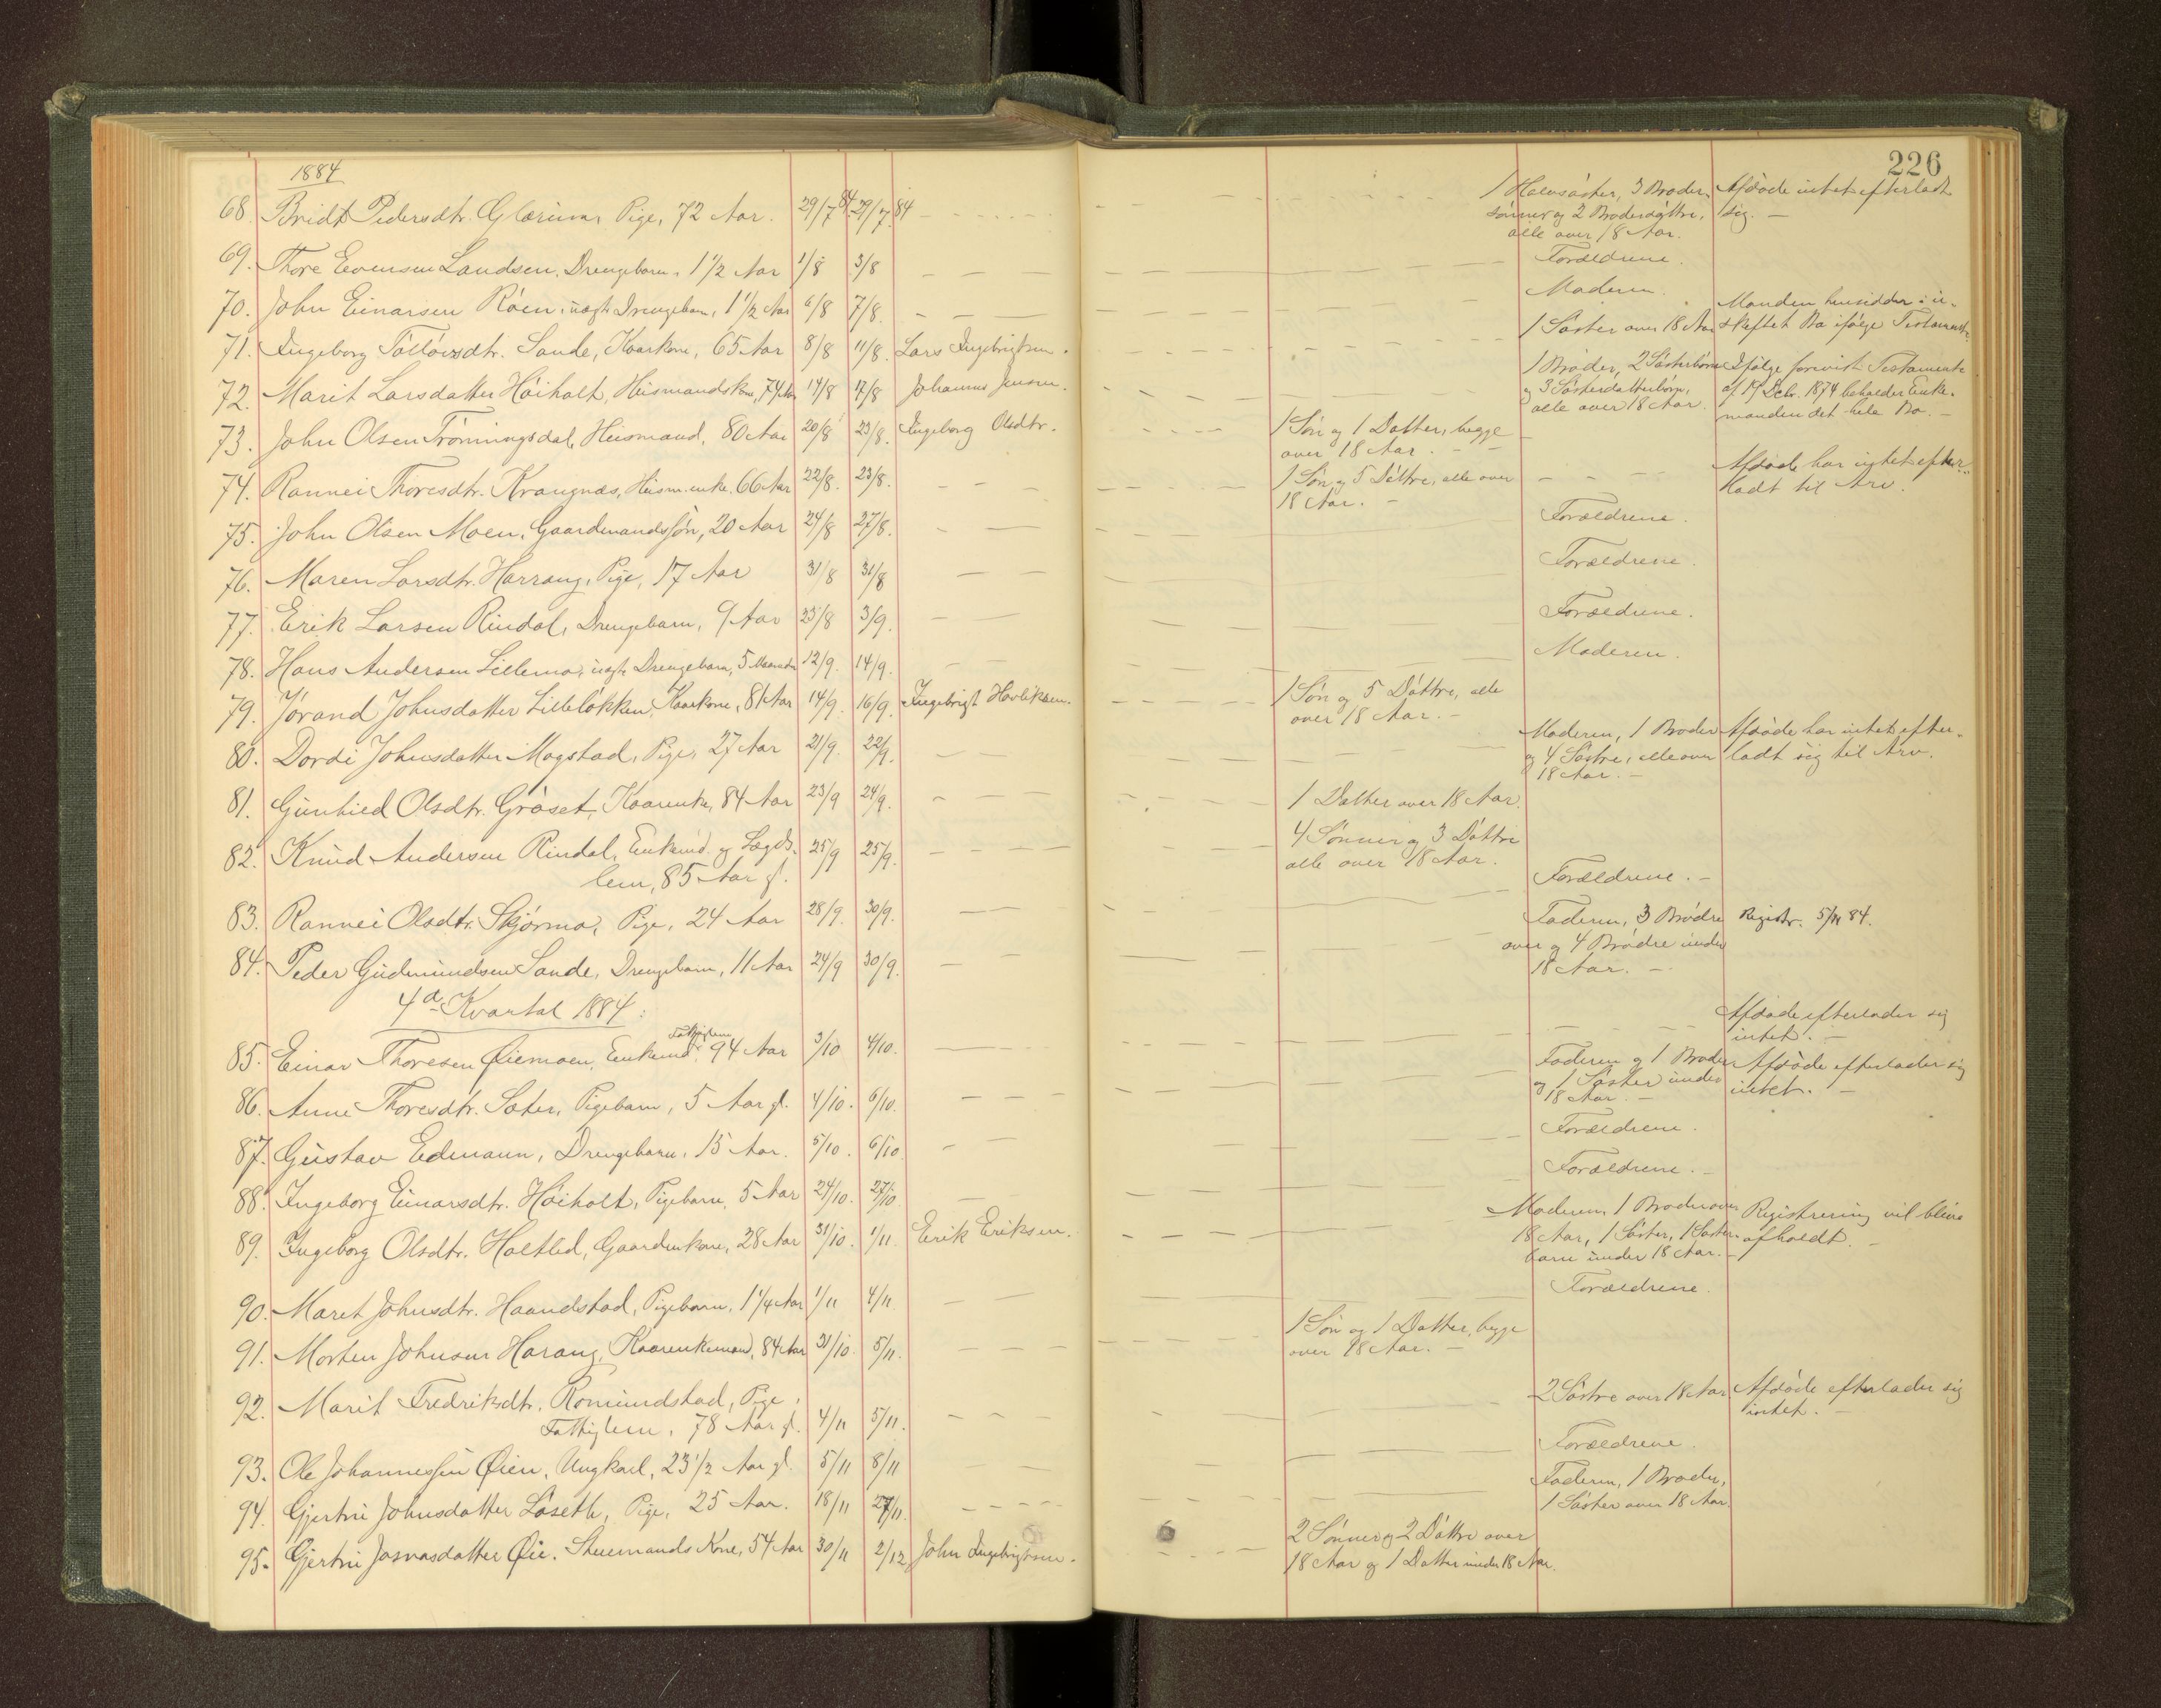 226
1884
68. Bridt Pedersdtr. Glærum, Pige, 72 Aar. 29/7 84 29/7 84 1 Halvsøster, 3 Broder- Afdøde intet efterladt
sønner og 2 Broderdøttre, sig. —
alle over 18 Aar.
69. Thore Evensen Landsen, Drengebarn, 1 1/2 Aar 1/8 3/8 — — Forældrene.
70. John Einarsen Røen, uægte Drengebarn, 1 1/2 Aar 6/8 7/8. — — — Moderen.
71. Ingeborg Tølløvsdtr. Sande, Kaarkone, 65 Aar 8/8 11/8. Lars Ingebrigtsen. 1 Søster over 18 Aar Manden hensidder i u-
skiftet Bo ifølge Testament.
72. Marit Larsdatter Høiholt, Husmandskone, 74 Aar 14/8 17/8 Johannes Jensen. 1 Broder, 2 Søsterbørn Ifølge forevist Testamente
og 3 Søsterdatterbørn, af 17 Debr. 1874 beholder Enke-
alle over 18 Aar. manden det hele Bo. —
73. John Olsen Trønningsdal, Husmand, 80 Aar 20/8 23/8. Ingeborg Olsdtr. 1 Søn og 1 Datter, begge
over 18 Aar. —
74. Rannei Thoresdtr. Krangnæs, Husm.enke, 66 Aar 22/8. 23/8. — — 1 Søn og 5 Døttre, alle over Afdøde har intet efter-
18 Aar. — ladt til Arv.
75. John Olsen Moen, Gaardmandssøn, 20 Aar 24/8 27/8. — — Forældrene.
76. Maren Larsdtr. Harrang, Pige, 17 Aar 31/8 31/8 — — Forældrene.
77. Erik Larsen Rindal, Drengebarn, 9 Aar 23/8 3/9. — — Forældrene.
78. Hans Andersen Lillemo, uægte Drengebarn, 5 Maaneder 12/9. 14/9. — — Moderen.
79. Jørand Johnsdatter Lilleløkken, Kaarkone, 81 Aar 14/9. 16/9. Ingebrigt Havliksen. 1 Søn og 5 Døttre, alle
over 18 Aar. —
80. Dordi Johnsdatter Mogstad, Pige, 27 Aar 21/9. 22/9. — — Moderen, 1 Broder Afdøde har intet efter-
og 4 Søstre, alle over ladt sig til Arv.
18 Aar. —
81. Gunhild Olsdtr. Grøset, Kaarenke, 84 Aar 23/9 24/9. — — 1 Datter over 18 Aar.
82. Knud Andersen Rindal, Enkemd. og Lægds- 25/9 25/9. — — 4 Sønner og 3 Døttre
lem, 85 Aar gl. alle over 18 Aar.
83. Rannei Olsdtr. Skjørmo, Pige, 24 Aar 28/9. 30/9. — — Forældrene. —
84. Peder Gudmundsen Sande, Drengebarn, 11 Aar 24/9 30/9. — — Faderen, 3 Brødre Registr. 5/11 84.
over og 4 Brødre under
18 Aar. —
4de Kvartal 1884:
85. Einar Thoresen Øiemoen, Enkemd. Fattiglem 94 Aar 3/10 4/10. — — Afdøde efterlader sig
intet. —
86. Anne Thoresdtr. Sæter, Pigebarn, 5 Aar gl. 4/10. 6/10. — — — Faderen og 1 Broder Afdøde efterlader sig
og 1 Søster under intet. —
18 Aar. —
87. Gustav Edmann, Drengebarn, 15 Aar. 5/10. 6/10. — — Forældrene.
88. Ingeborg Einarsdtr. Høiholt, Pigebarn, 5 Aar 24/10. 27/10 — Forældrene. —
89. Ingeborg Olsdtr. Holtlid, Gaardmkone, 28 Aar 31/10. 1/11 Erik Eriksen. Moderen, 1 Broder over Registrering vil blive
18 Aar, 1 Søster, 1 Søster- afholdt. —
barn under 18 Aar. —
90. Maret Johnsdtr. Haandstad, Pigebarn, 1 1/4 Aar 1/11 4/11 — — Forældrene.
91. Morten Johnsen Harang, Kaarenkemand, 84 Aar 31/10. 5/11. — — 1 Søn og 1 Datter, begge
over 18 Aar. —
92. Marit Fredriksdtr. Romundstad, Pige,
Fattiglem, 78 Aar gl. 4/11 5/11. — — 2 Søstre over 18 Aar Afdøde efterlader sig
intet. —
93. Ole Johannessen Øien, Ungkarl, 23 1/2 Aar gl. 5/11 8/11 — — Forældrene.
94. Gjertru Johnsdatter Løseth, Pige, 25 Aar. 18/11 27/11. — — Faderen, 1 Broder,
1 Søster over 18 Aar.
95. Gjertru Jonasdatter Øie, Stuemands Kone, 54 Aar 30/11 2/12 John Ingebrigtsen. 2 Sønner og 2 Døttre over
18 Aar og 1 Datter under 18 Aar.